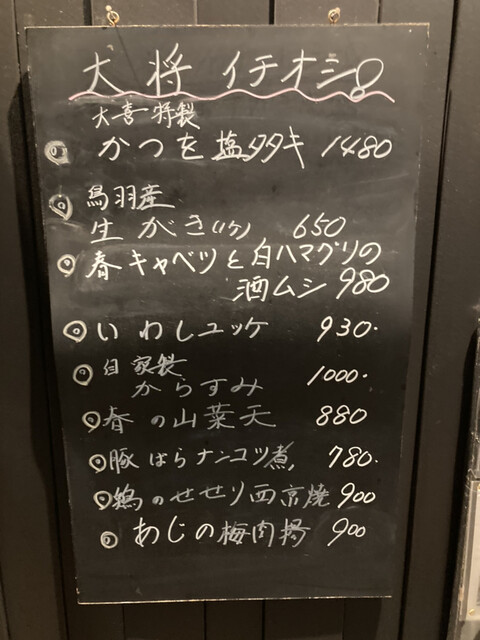 大将 イチオシ!
大喜特製
かつを塩タタキ 1480
鳥羽産
生がき(1ケ) 650
春キャベツと白ハマグリの
酒ムシ 980
いわしユッケ 930.
自家製
からすみ 1000.
春の山菜天 880
豚ばらナンコツ煮 780.
鶏のせせり西京焼 900
あじの梅肉揚 900